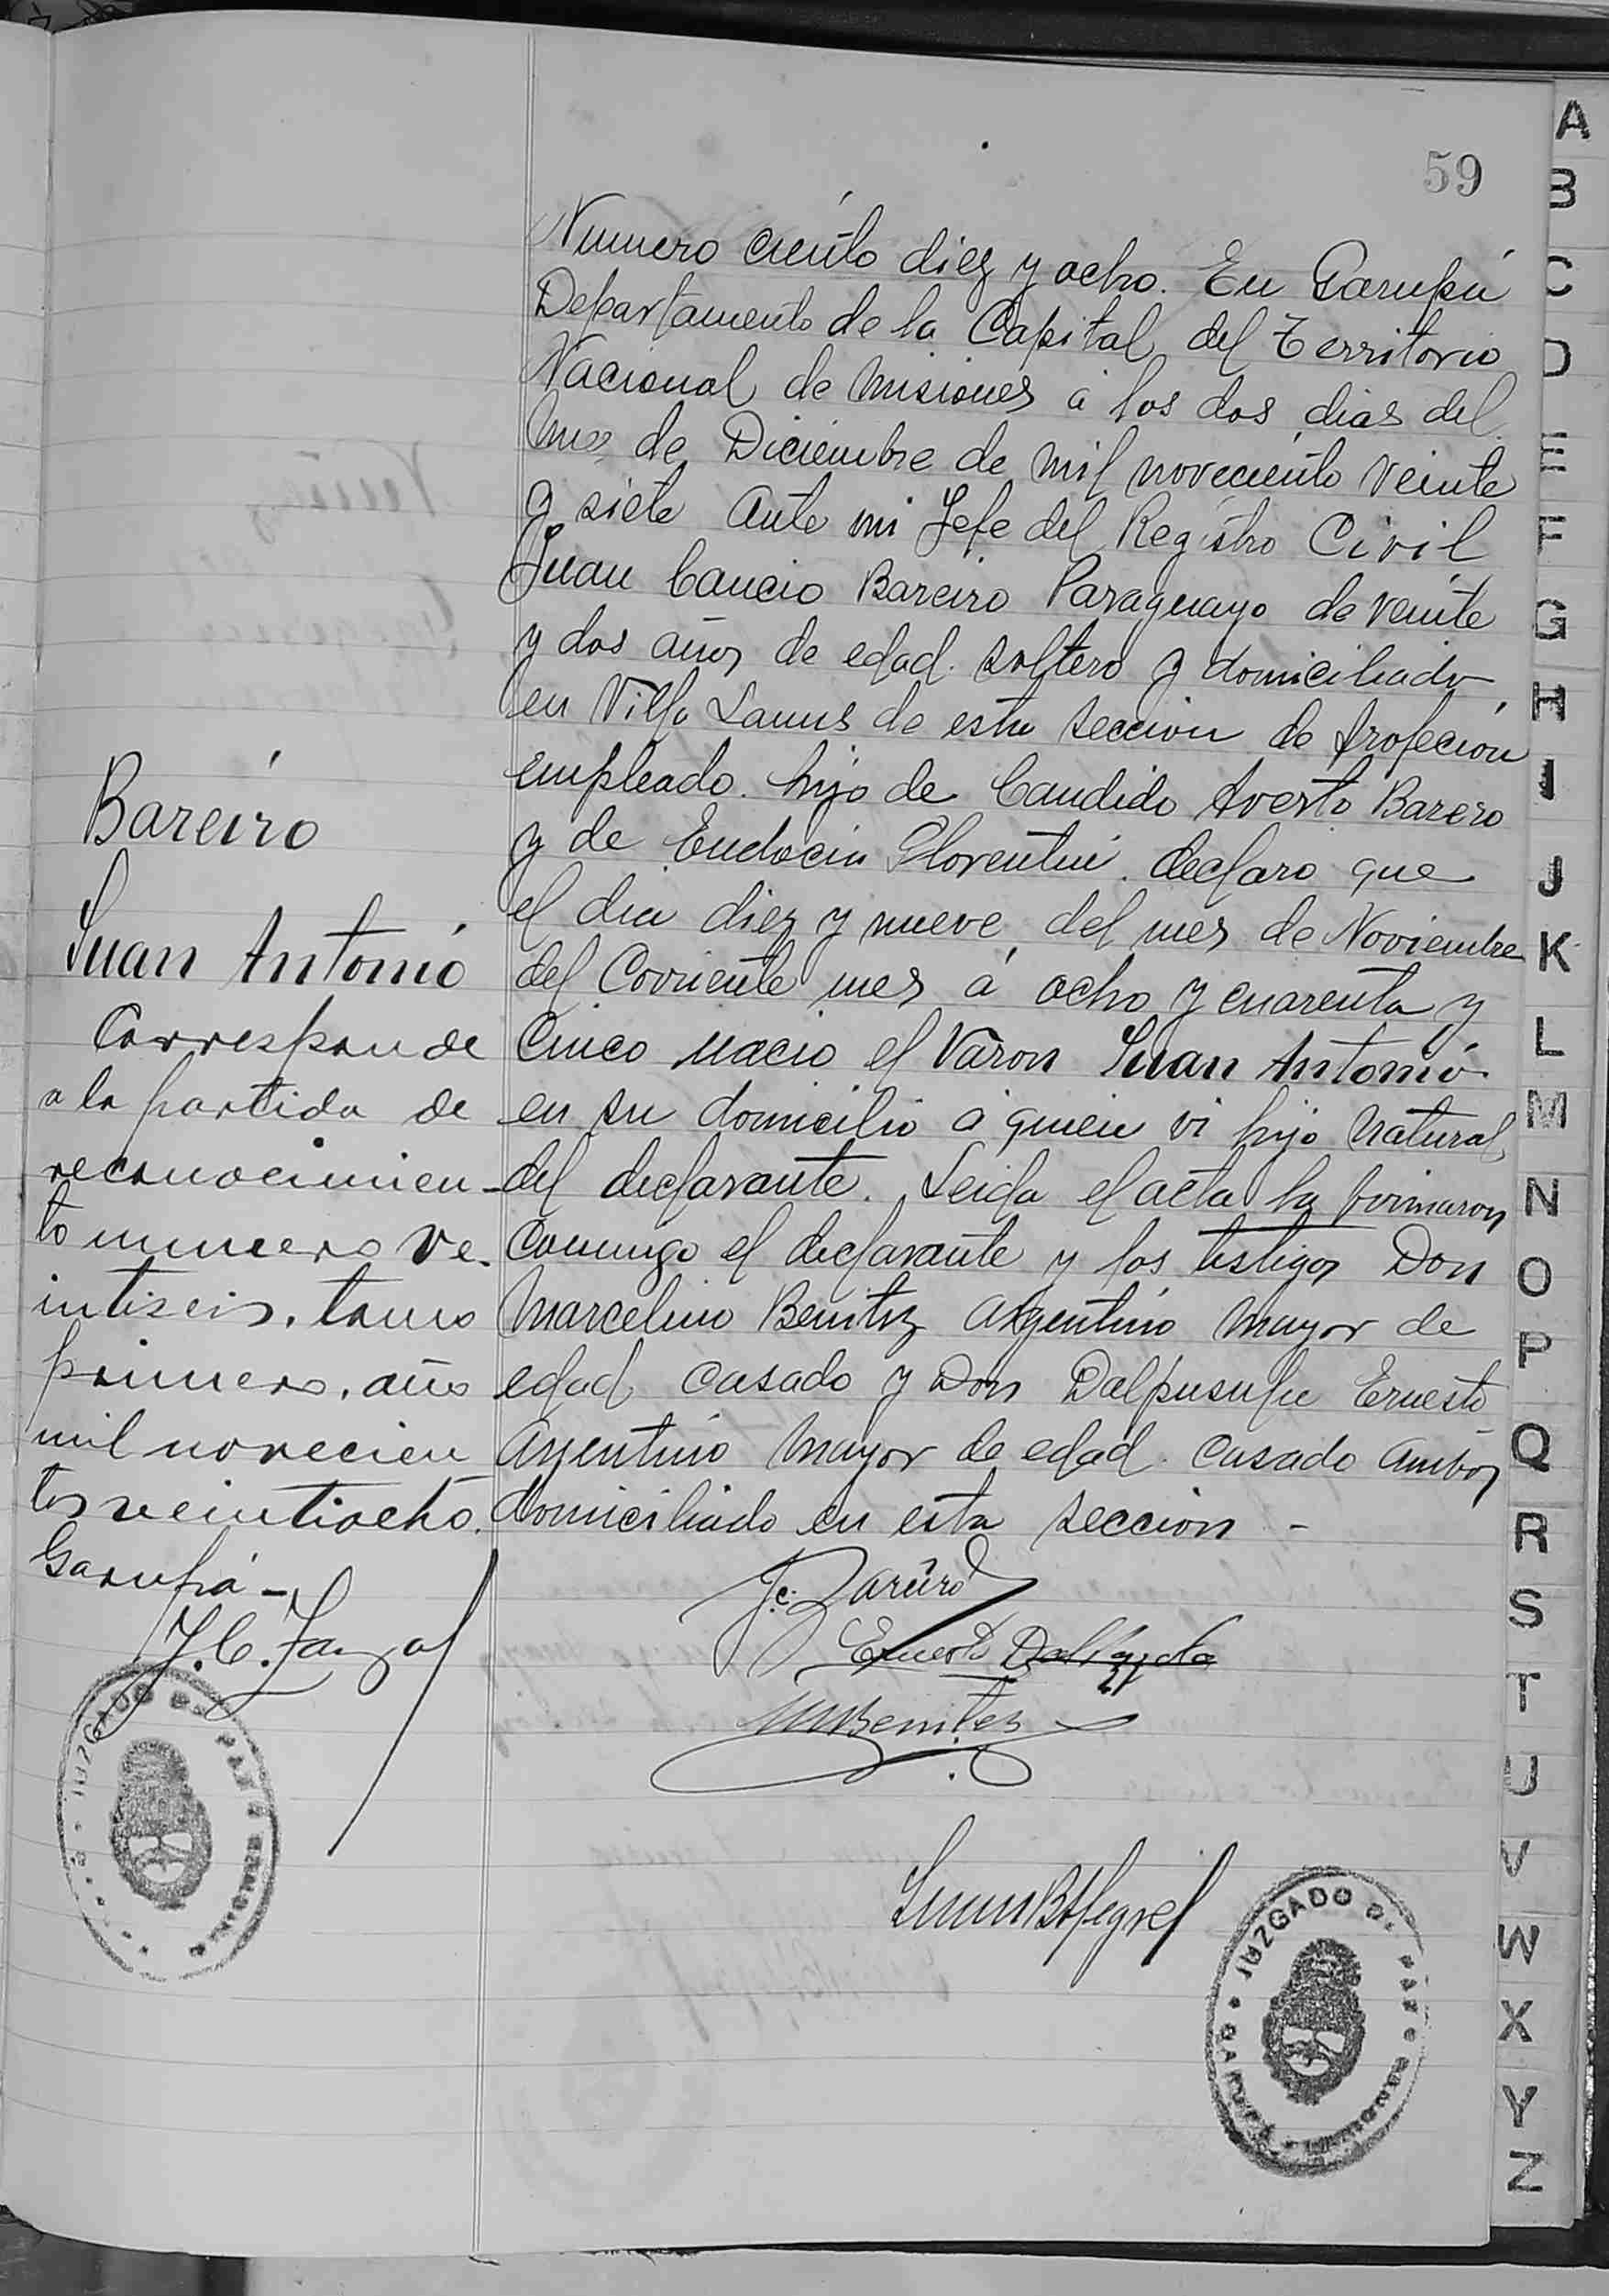 59
Numero ciento diez y ocho. En Garupá
Departamento de la Capital del Territorio
Nacional de Misiones á los dos dias del
mes de Diciembre de mil noveciento veinte
y siete Ante mi Jefe del Registro Civil
Juan Cancio Bareiro Paraguayo de veinte
y dos años de edad. soltero y domiciliado
en Villa Lanus de esta seccion de profecion
empleado. hijo de Candido Barero
y de Eudocia Florentin. declaro que
el dia diez y nueve del mes de Noviembre
del Corriente mes á ocho y cuarenta y
Cinco nacio el Varon Juan Antonio
en su domicilio á quien vi hijo natural
del declarante. Leida el acta la firmaron
Conmigo el declarante y los testigos Don
Marcelino Benitez Argentino mayor de
edad casado y Don Ernesto
Argentino mayor de edad. casado ambos
domiciliado en esta seccion -
Bareiro
Juan Antonio
Corresponde
a la partida de
reconocimien-
to numero ve-
intiseis, tomo
primero, año
mil novecien
tos veintiocho.
Garupá -
J. C.
J. C. Bareiro
Ernesto
M Benitez
JUZGADO DE PAZ
JUZGADO DE PAZ
GARUPÁ
MISIONES
A
B
C
D
E
F
G
H
I
J
K
L
M
N
O
P
Q
R
S
T
U
V
W
X
Y
Z